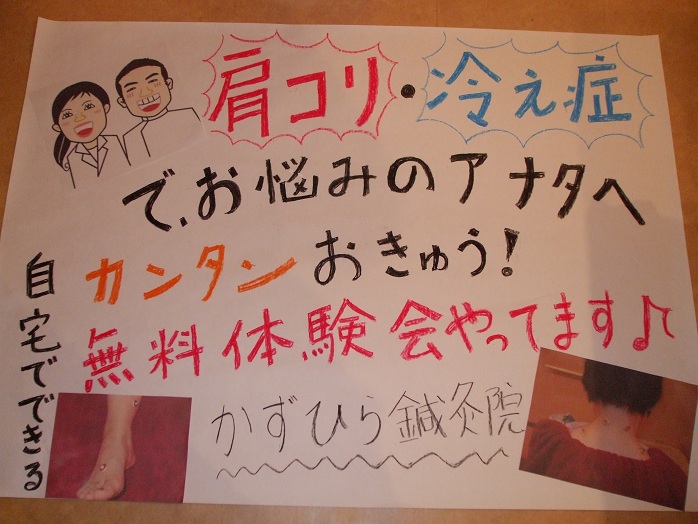 肩コリ・冷え症
で、お悩みのアナタへ
自宅でできる
カンタンおきゅう!
無料体験会やってます♪
かずひら鍼灸院